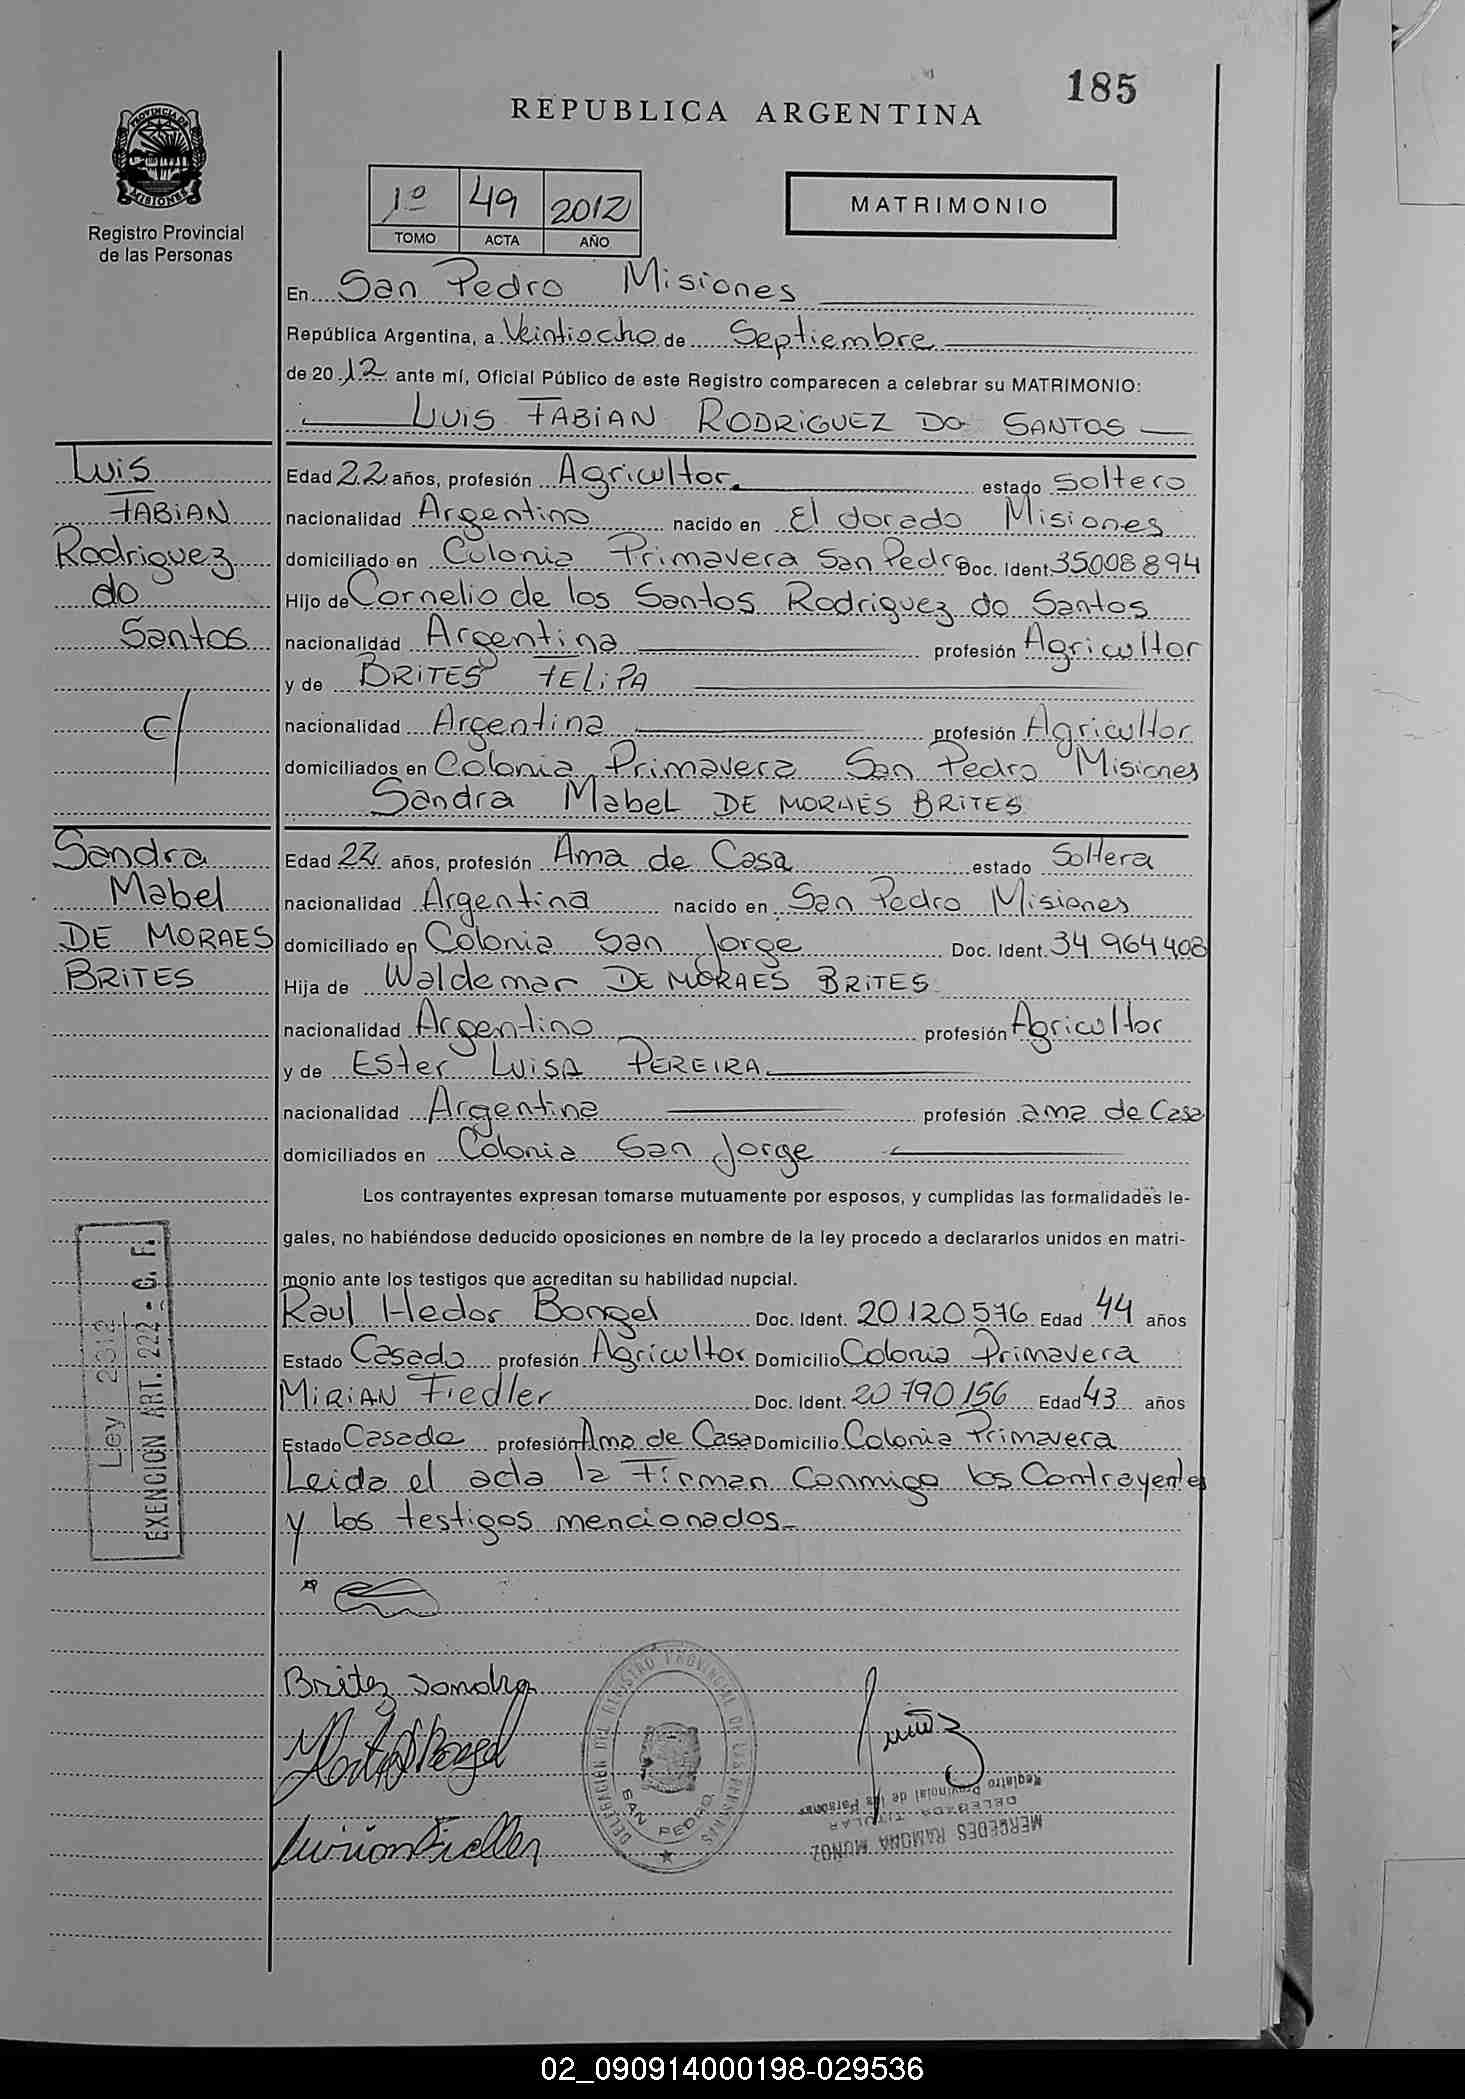 185
REPUBLICA ARGENTINA
PROVINCIA DE MISIONES
Registro Provincial
de las Personas
1º 49 2012
TOMO ACTA AÑO
MATRIMONIO
En San Pedro Misiones
República Argentina, a Veintiocho de Septiembre
de 20 12 ante mí, Oficial Público de este Registro comparecen a celebrar su MATRIMONIO:
LUIS FABIAN RODRIGUEZ DO SANTOS
Luis
FABIAN
Rodriguez
do
Santos
c/
Edad 22 años, profesión Agricultor estado Soltero
nacionalidad Argentino nacido en El dorado Misiones
domiciliado en Colonia Primavera San Pedro Doc. Ident. 35008894
Hijo de Cornelio de los Santos Rodriguez do Santos
nacionalidad Argentina profesión Agricultor
y de BRITES FELiPA
nacionalidad Argentina profesión Agricultor
domiciliados en Colonia Primavera San Pedro Misiones
Sandra Mabel DE MORAES BRITES
Sandra
Mabel
DE MORAES
BRITES
Edad 22 años, profesión Ama de Casa estado Soltera
nacionalidad Argentina nacido en San Pedro Misiones
domiciliado en Colonia San Jorge Doc. Ident. 34 964 408
Hija de Waldemar DE MORAES BRITES
nacionalidad Argentino profesión Agricultor
y de Ester LUISA PEREIRA
nacionalidad Argentina profesión ama de Casa
domiciliados en Colonia San Jorge
Los contrayentes expresan tomarse mutuamente por esposos, y cumplidas las formalidades le-
gales, no habiéndose deducido oposiciones en nombre de la ley procedo a declararlos unidos en matri-
monio ante los testigos que acreditan su habilidad nupcial.
Raul Hedor Bongel Doc. Ident. 20 120 576 Edad 44 años
Estado Casado profesión Agricultor Domicilio Colonia Primavera
MIRIAN Fiedler Doc. Ident. 20 790 156 Edad 43 años
Estado Casada profesión Ama de Casa Domicilio Colonia Primavera
Leida el acta la Firman Conmigo los Contrayentes
y los testigos mencionados
Ley 2312
EXENCION ART. 222 - C. F.
Britez Sandra
Mirian Fiedler
DELEGACION DEL REGISTRO PROVINCIAL DE LAS PERSONAS
SAN PEDRO
Muñoz
MERCEDES RAMONA MUÑOZ
DELEGADA TITULAR
Registro Provincial de las Personas
02_090914000198-029536